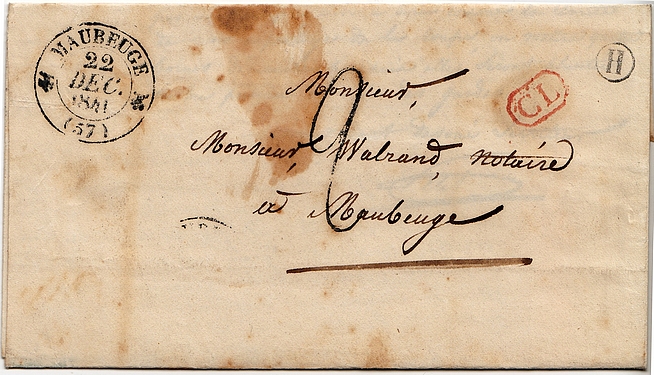 MAUBEUGE
22
DEC.
1841
(57)
H
CL
2
Monsieur,
Monsieur Walrand, notaire
à Maubeuge